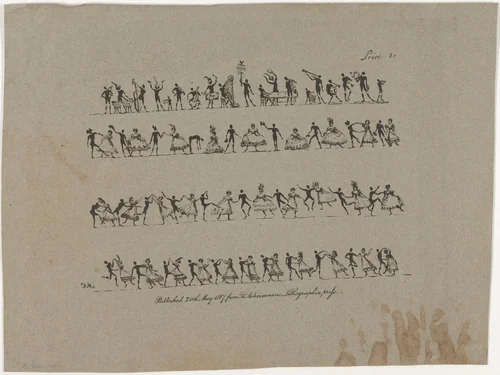 Price
Published 20th May 1817 from R. Ackermann's Lithographic press